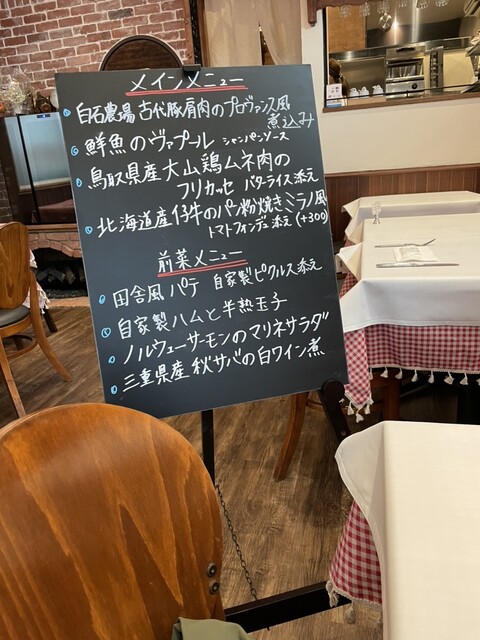 メインメニュー
白石農場 古代豚肩肉のプロヴァンス風
煮込み
鮮魚のヴァプール シャンパンソース
鳥取県産大山鶏ムネ肉の
フリカッセ バターライス添え
北海道産仔牛のパン粉焼きミラノ風
トマトフォンデュ添え (+300)
前菜メニュー
田舎風パテ 自家製ピクルス添え
自家製ハムと半熟玉子
ノルウェーサーモンのマリネサラダ
三重県産 秋サバの白ワイン煮